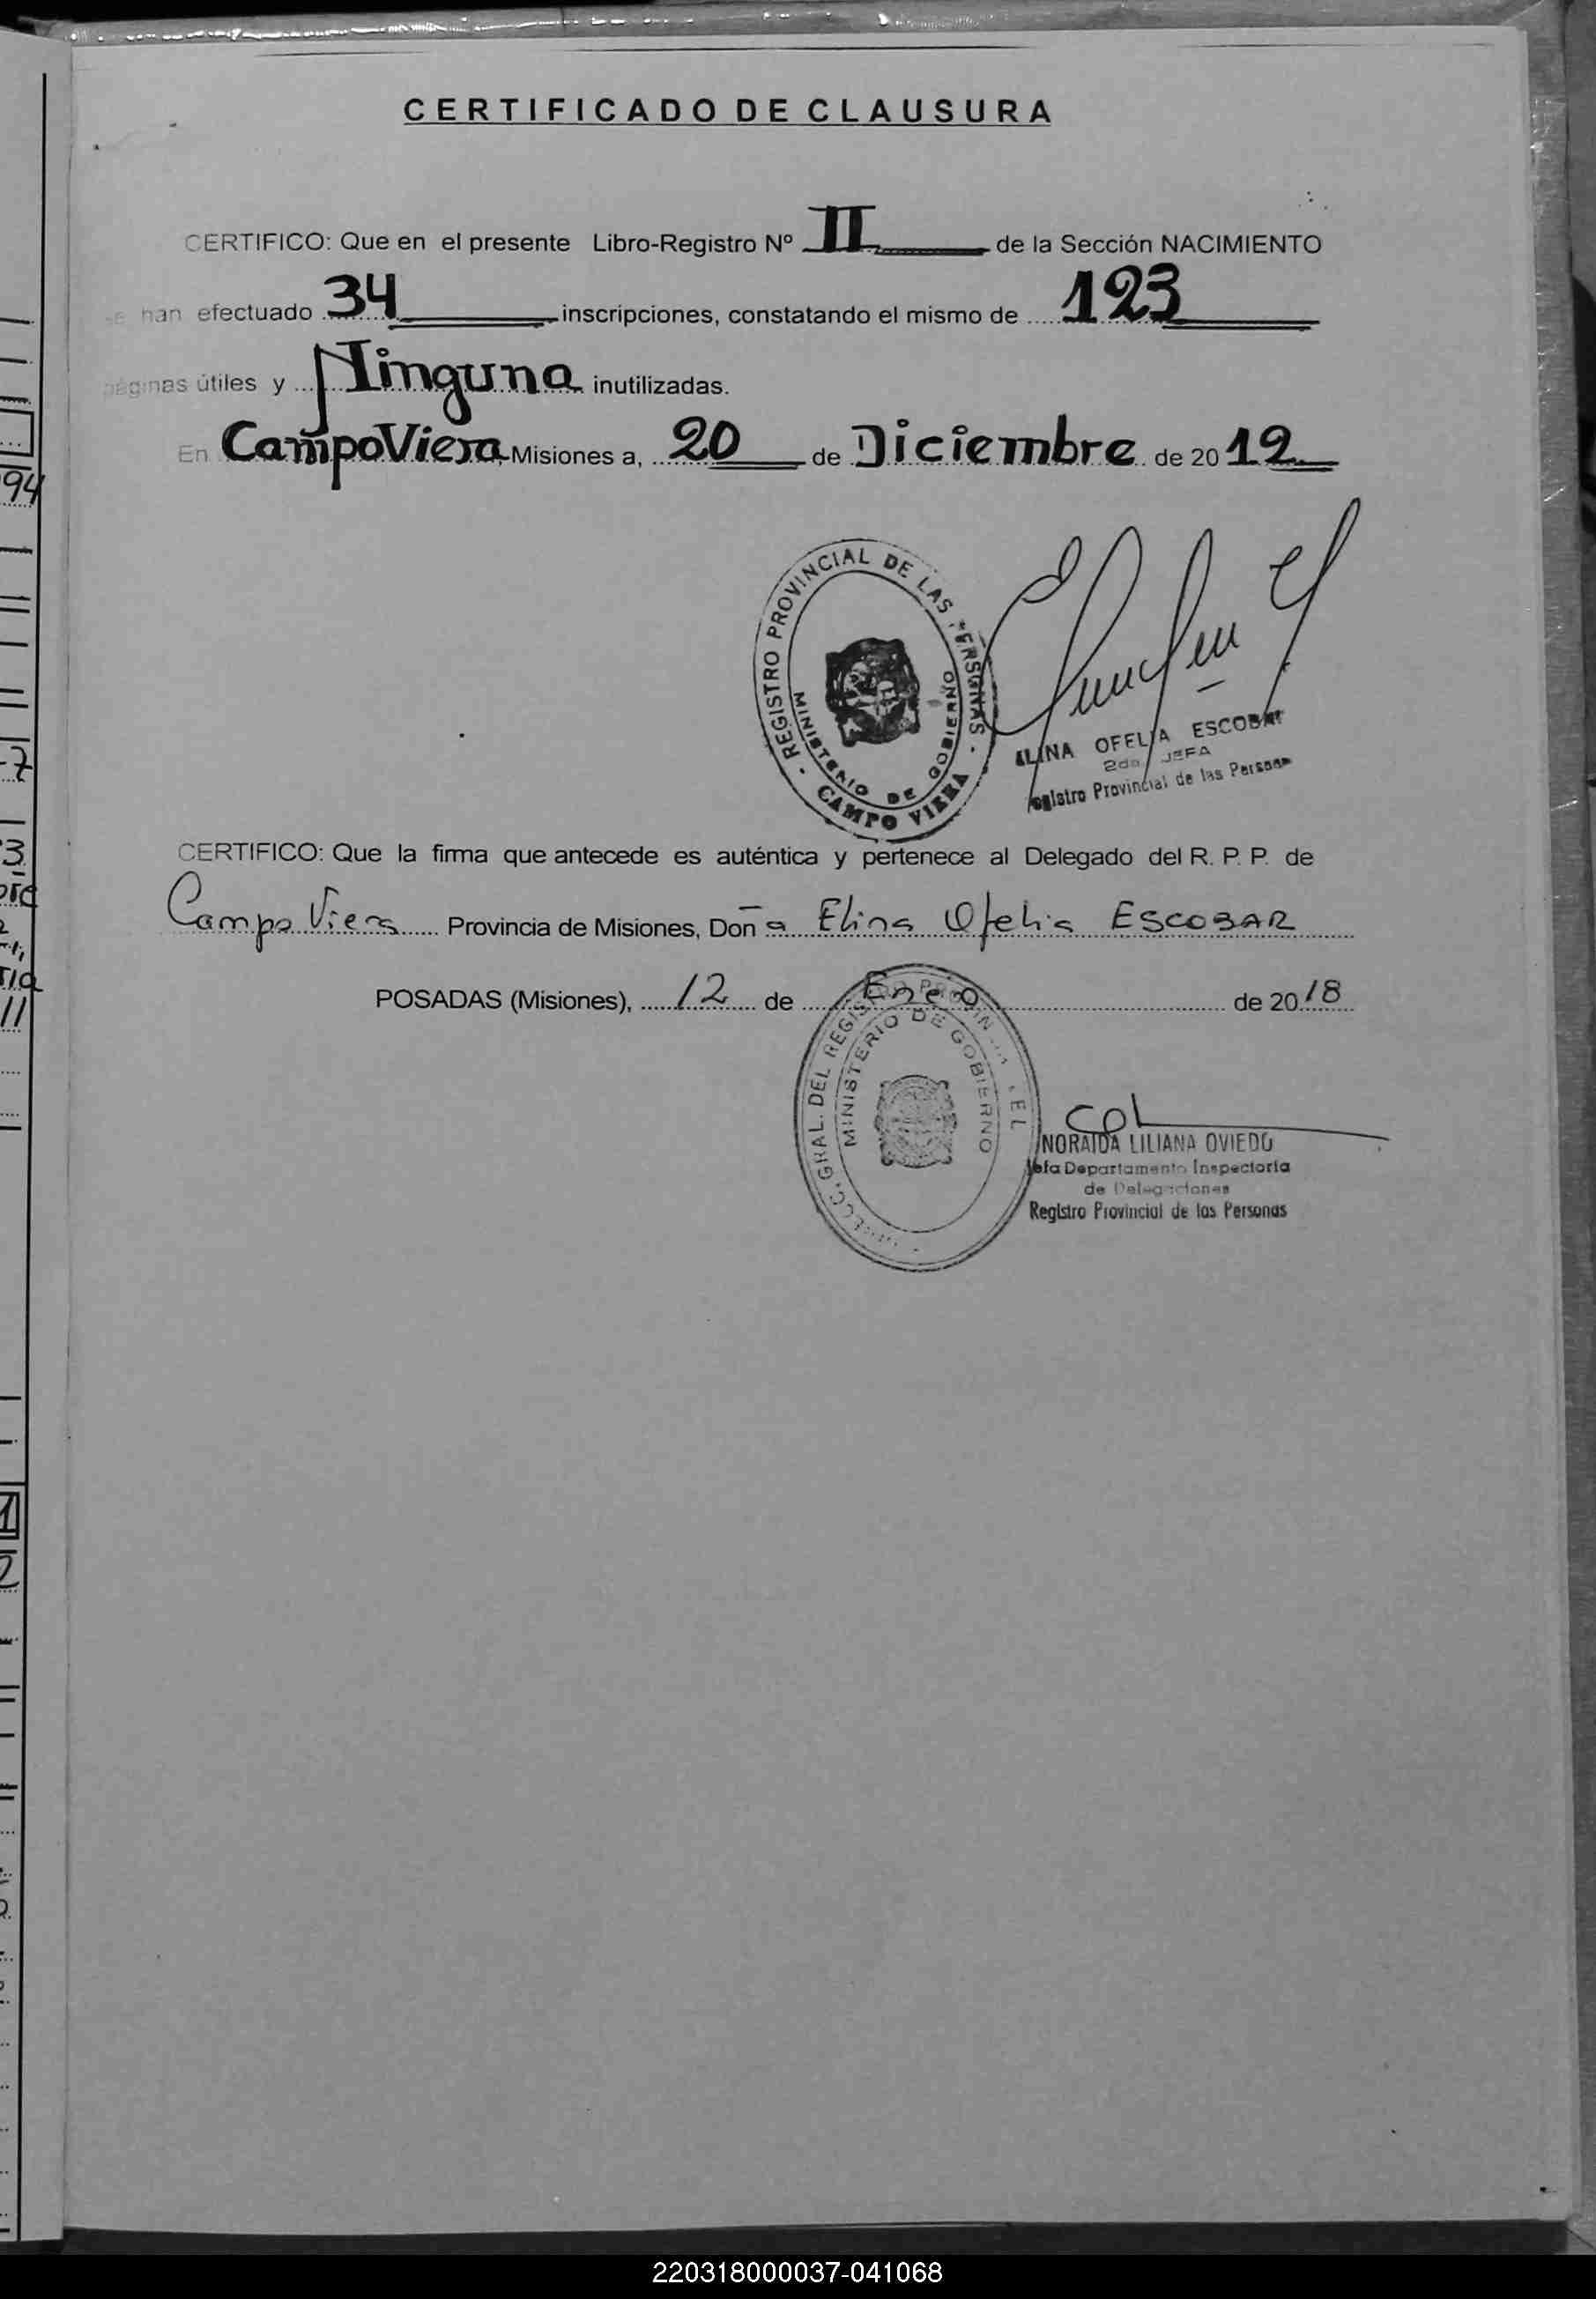 CERTIFICADO DE CLAUSURA
CERTIFICO: Que en el presente Libro-Registro Nº II de la Sección NACIMIENTO
se han efectuado 34 inscripciones, constatando el mismo de 123
páginas útiles y Ninguna inutilizadas.
En Campo Viera, Misiones a, 20 de Diciembre de 2012
REGISTRO PROVINCIAL DE LAS PERSONAS
MINISTERIO DE GOBIERNO
CAMPO VIERA
ELINA OFELIA ESCOBAR
2da. JEFA
Registro Provincial de las Personas
CERTIFICO: Que la firma que antecede es auténtica y pertenece al Delegado del R. P. P. de
Campo Viera Provincia de Misiones, Doña Elina Ofelia ESCOBAR
POSADAS (Misiones), 12 de Enero de 2018
GRAL. DEL REGISTRO
MINISTERIO DE GOBIERNO
NORAIDA LILIANA OVIEDO
Jefa Departamento Inspectoría
de Delegaciones
Registro Provincial de las Personas
94
7
3
11
1
2
220318000037-041068